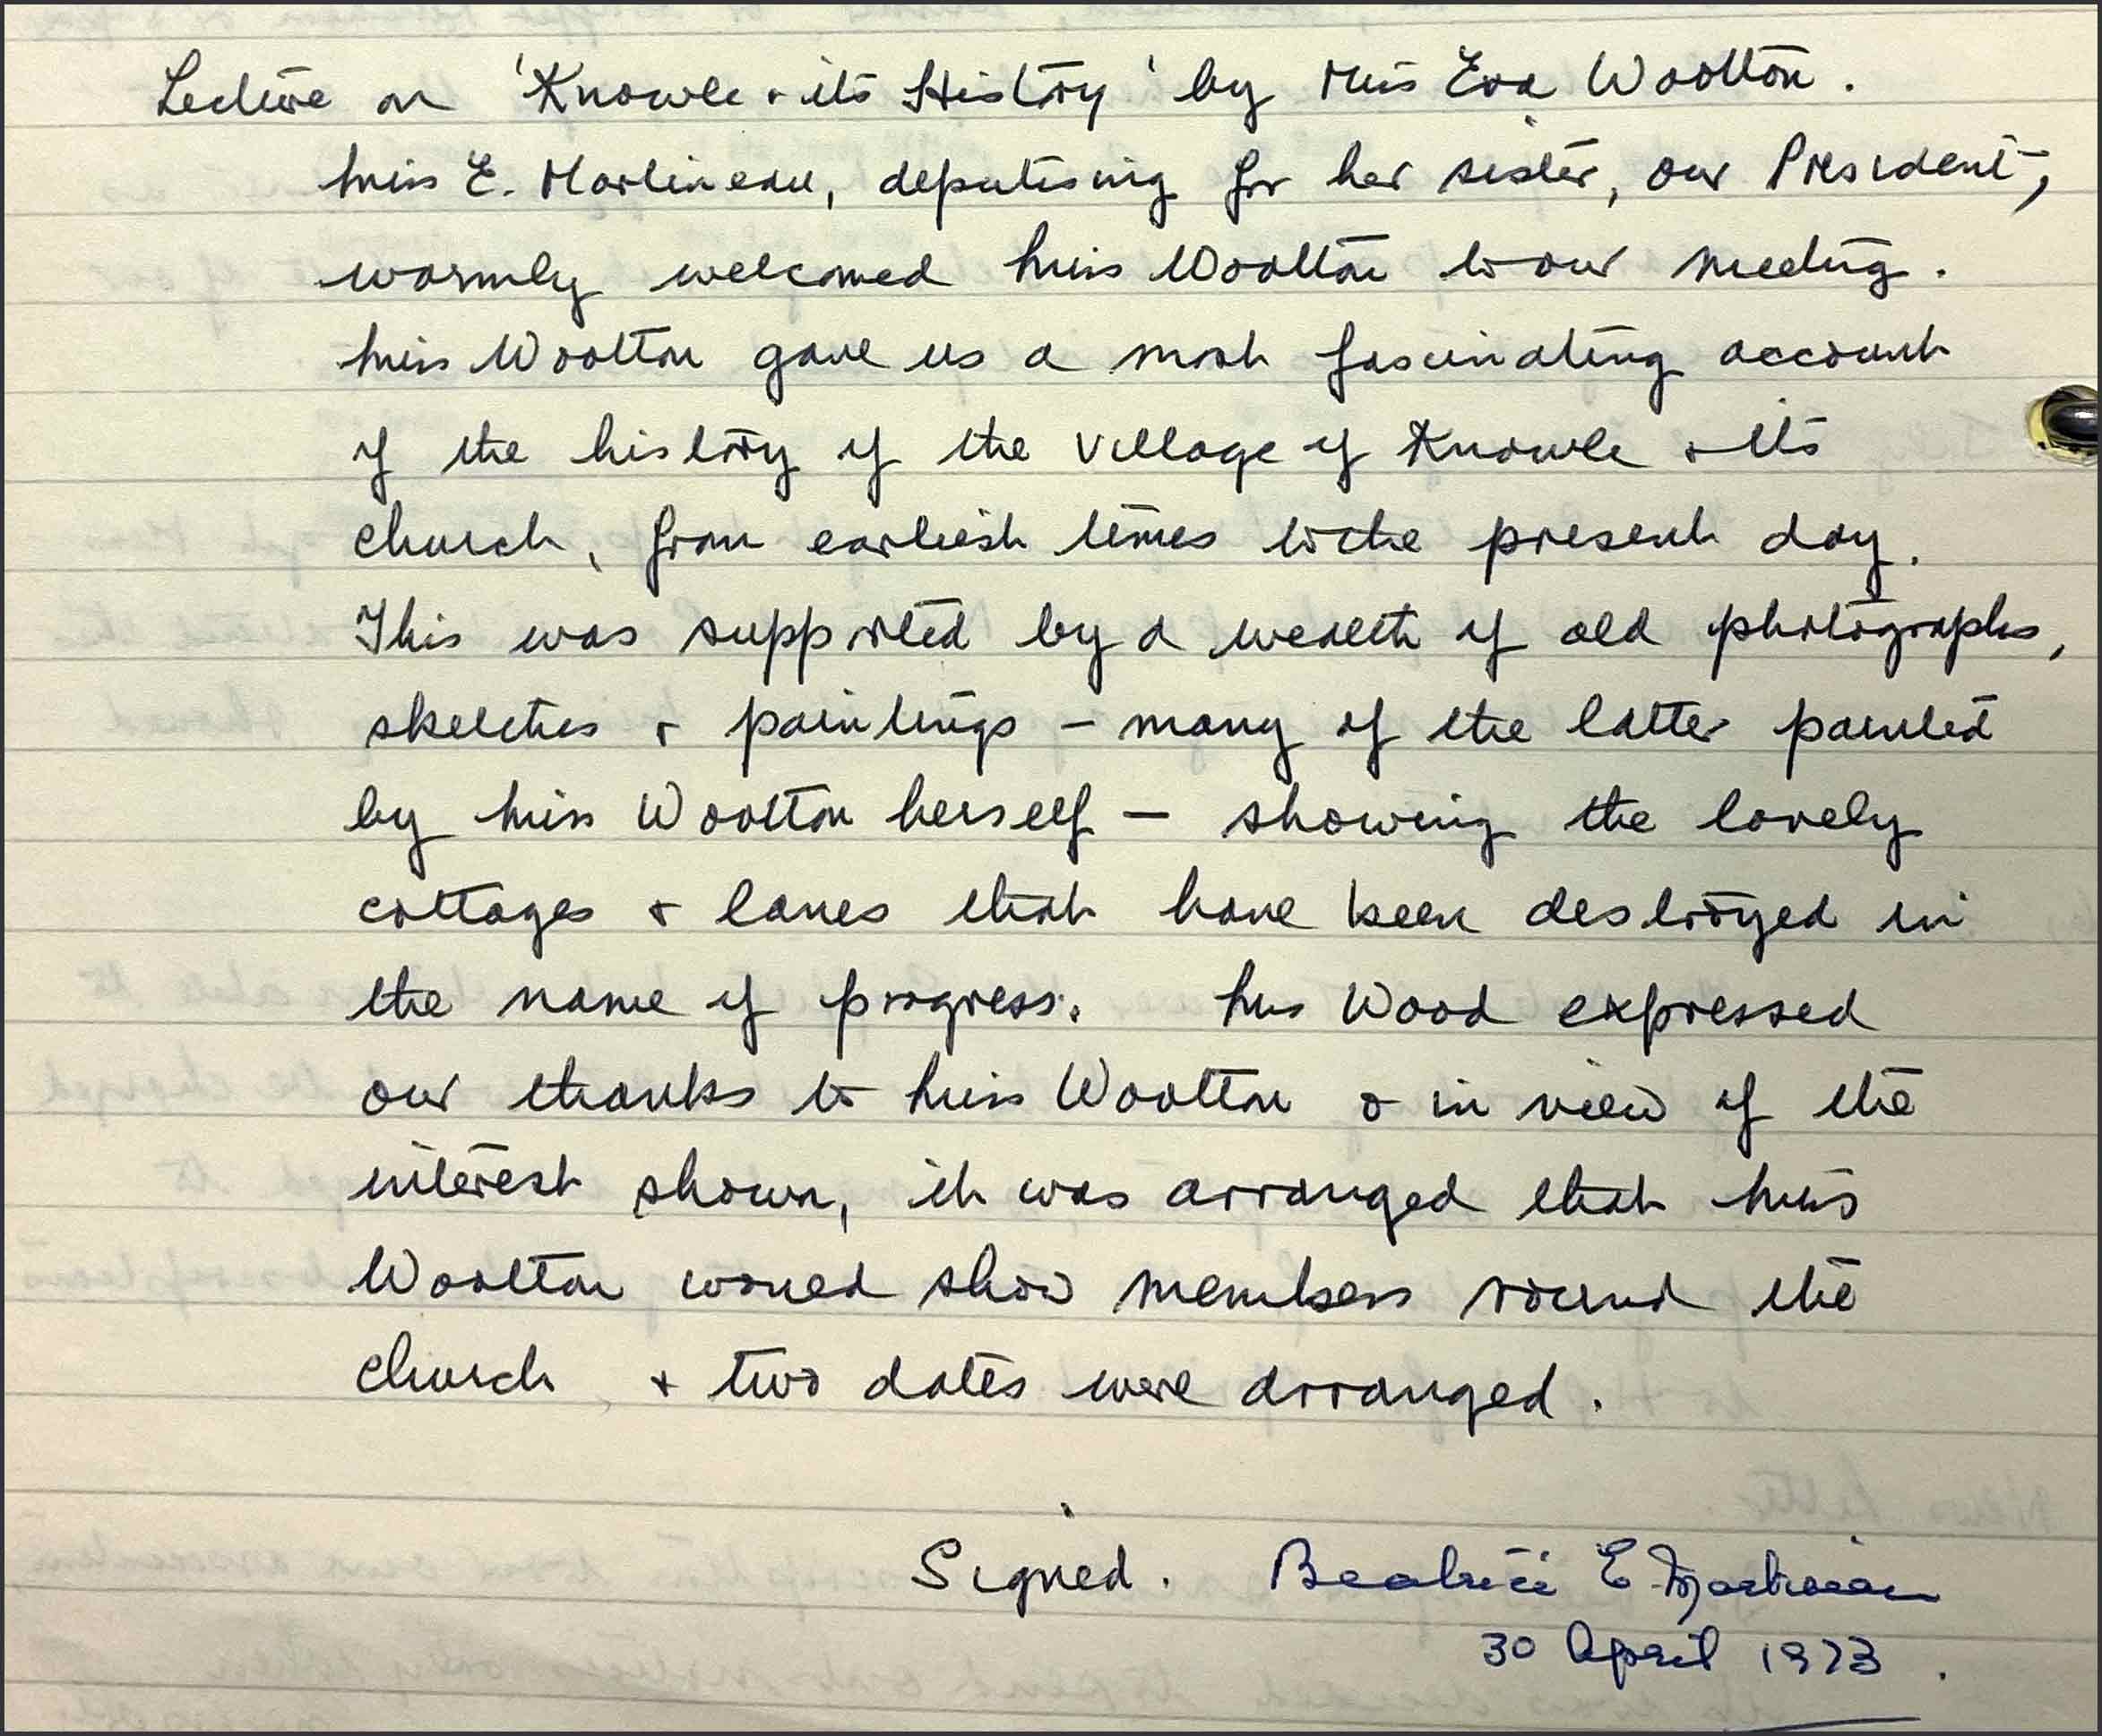 Lecture on 'Knowle & its History' by Miss Eva Wootton.
Miss E. Martineau, deputising for her sister, our President,
warmly welcomed Miss Wootton to our meeting.
Miss Wootton gave us a most fascinating account
of the history of the village of Knowle & its
church, from earliest times to the present day.
This was supported by a wealth of old photographs,
sketches & paintings – many of the latter painted
by Miss Wootton herself – showing the lovely
cottages & lanes that have been destroyed in
the name of progress. Mrs Wood expressed
our thanks to Miss Wootton & in view of the
interest shown, it was arranged that Miss
Wootton would show members round the
church & two dates were arranged.
Signed. Beatrice E Martineau
30 April 1973.